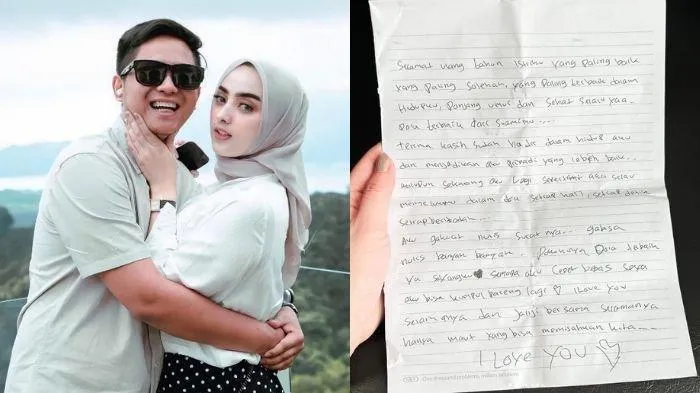 Selamat ulang tahun istriku yang paling baik
yang paling solehah, yang paling terbaik dalam
hidupku, panjang umur dan sehat selalu yaa..
Doa terbaik dari suamimu....
terima kasih sudah hadir dalam hidup aku
dan menjadikan aku pribadi yang lebih baik..
walaupun sekarang aku lagi
dalam doa setiap hari, setiap dunia
setiap beribadah....
Aku gakuat nulis surat nya... gabisa
nulis banyak banyak.. Pokoknya Doa terbaik
ya sayangku semoga aku cepet bebas supaya
aku bisa kumpul bareng lagi ♡ I love you
selamanya dan janji bersama selamanya
hanya maut yang bisa memisahkan kita....
I LOVE YOU ♡